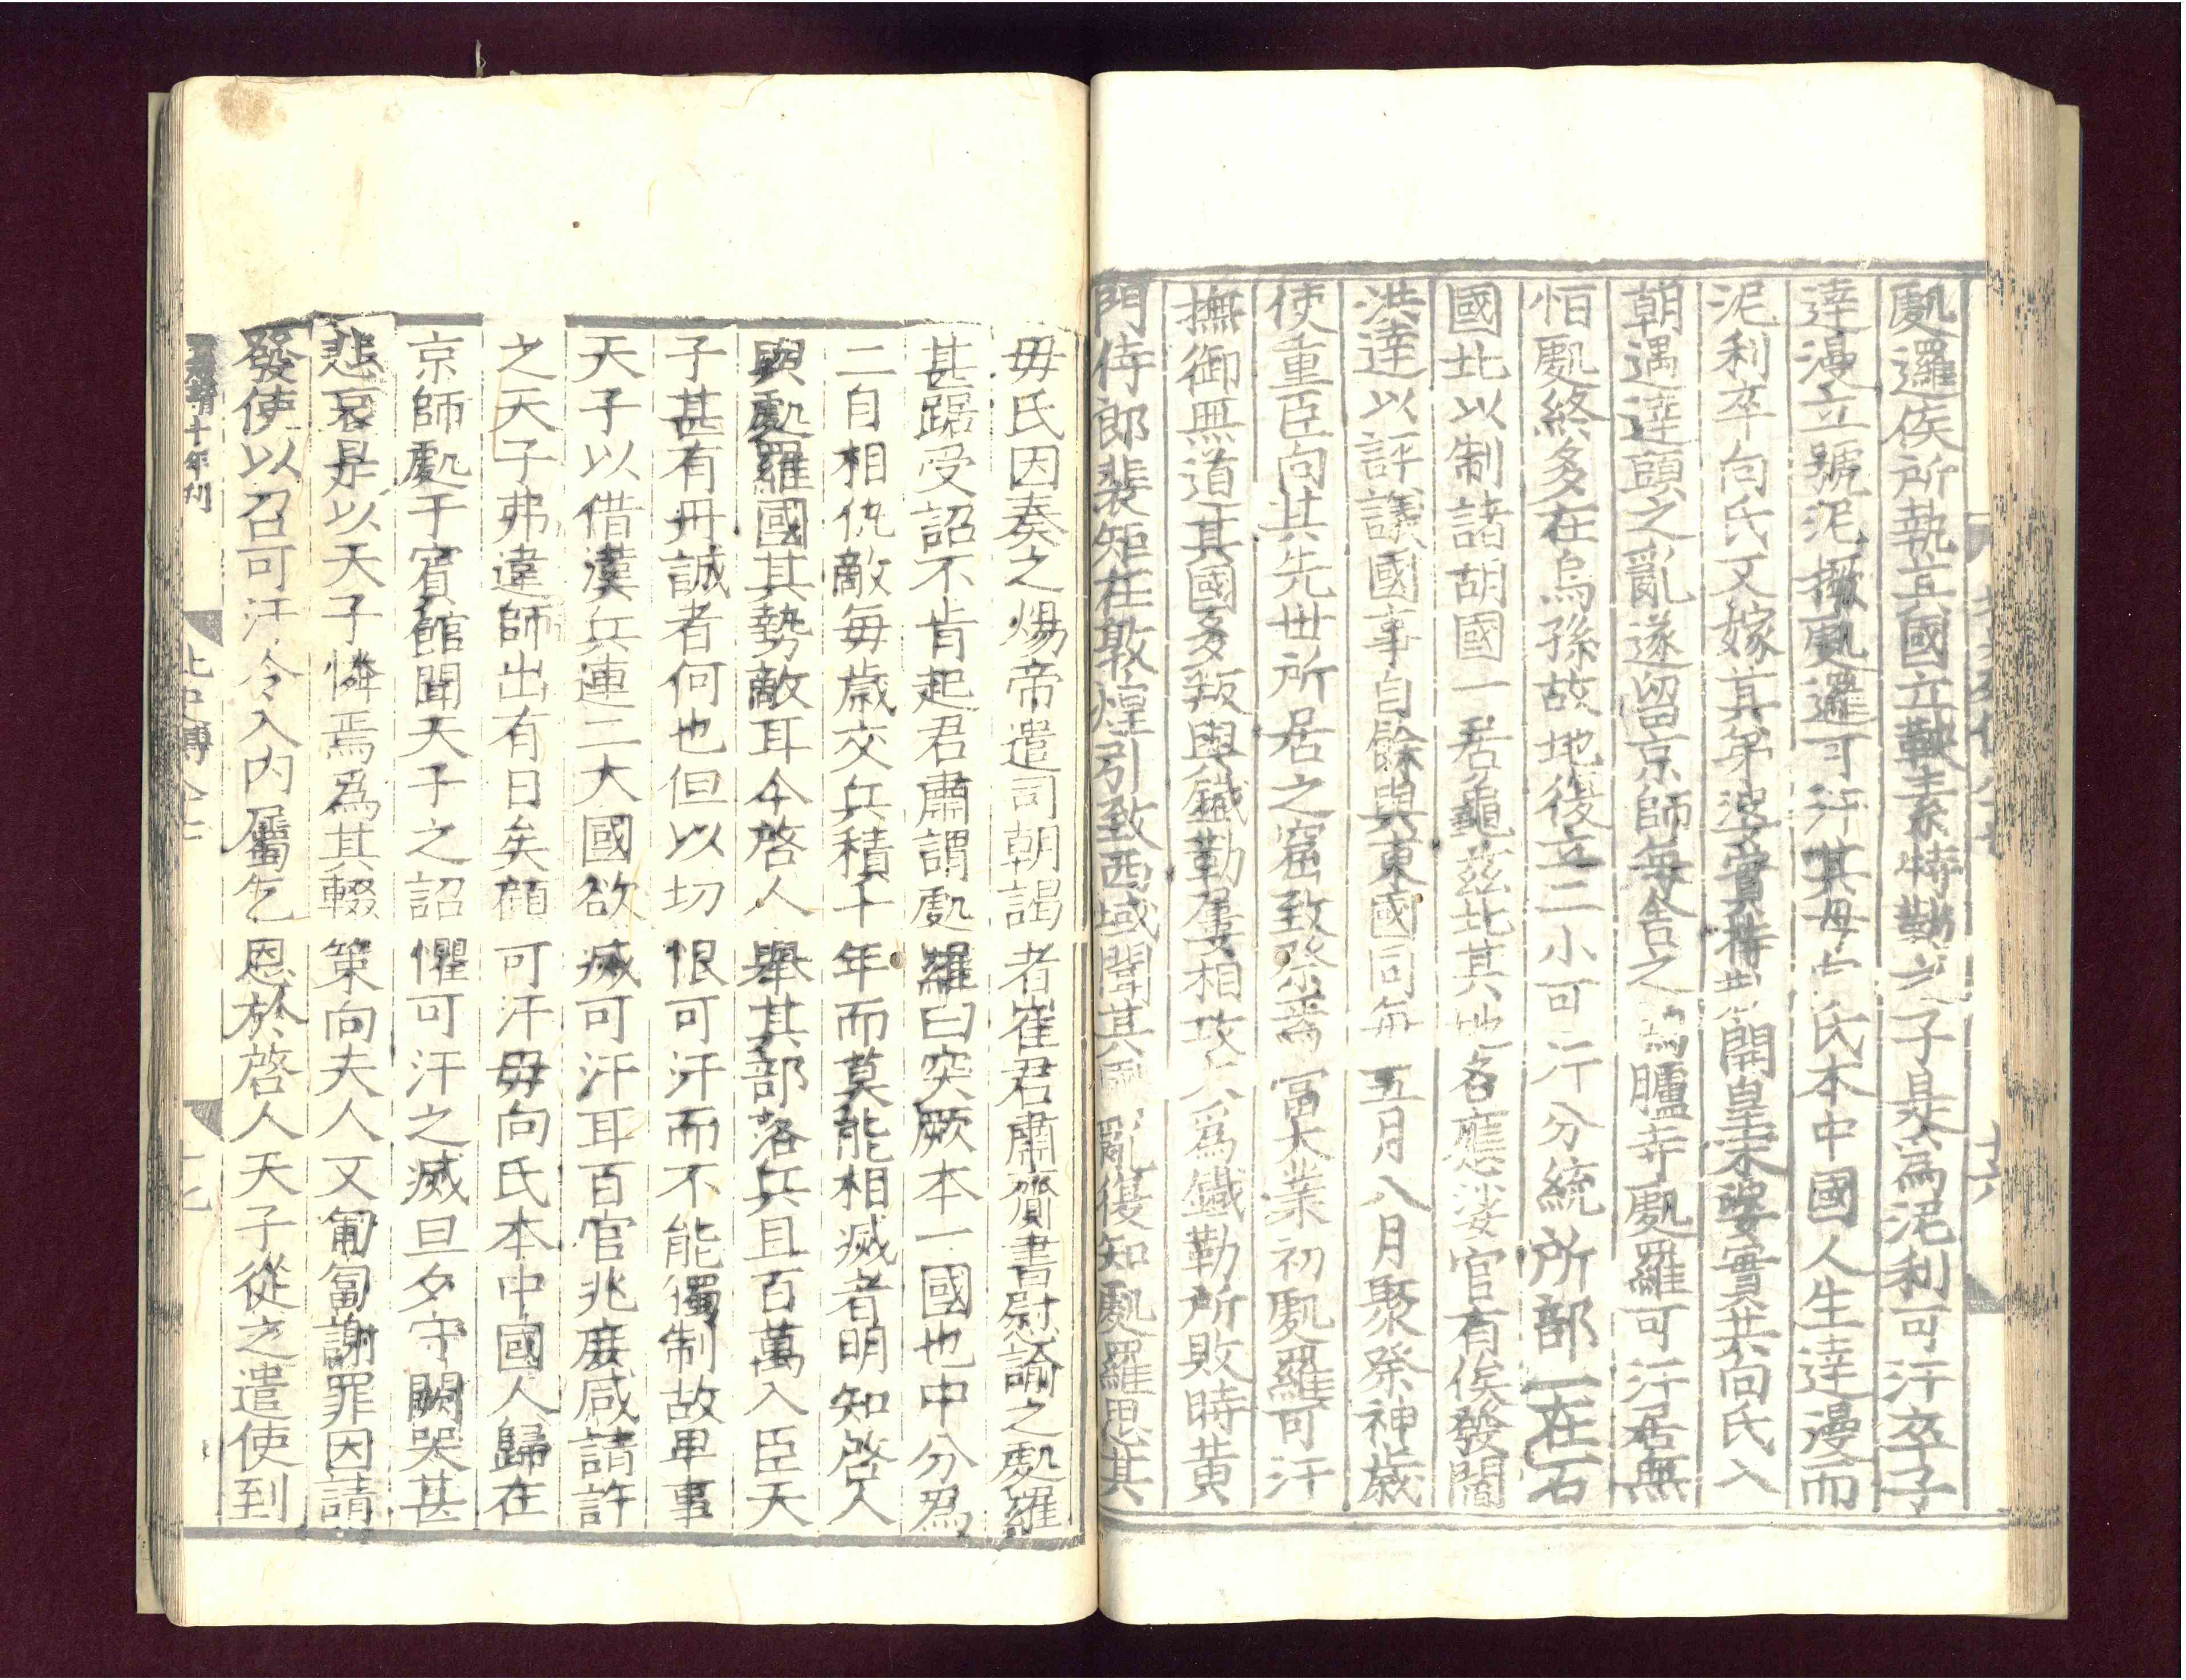 處邏侯所執其國立鞅素特勤之子是爲泥利可汗卒子
達漫立號泥撅處邏可汗其母向氏本中國人生達漫而
泥利卒向氏又嫁其弟婆實特勤開皇末婆實共向氏入
朝遇達頭之亂遂留京師每舍之鴻臚寺處羅可汗居無
恒處終多在烏孫故地復立二小可汗分統所部一在石
國北以制諸胡國一居龜茲北其地名應娑官有俟發閻
洪達以評議國事自餘與東國同每五月八月聚祭神歲
使重臣向其先世所居之窟致祭焉當大業初處羅可汗
撫御無道其國多叛與鐵勒屢相攻大爲鐵勒所敗時黃
門侍郎裴矩在敦煌引致西域聞其國亂復知處羅思其
毋氏因奏之煬帝遣司朝謁者崔君肅齎書慰諭之處羅
甚踞受詔不肯起君肅謂處羅曰突厥本一國也中分爲
二自相仇敵每歲交兵積千年而莫能相滅者明知啓人
與處羅國其勢敵耳今啓人舉其部落兵且百萬入臣天
子甚有丹誠者何也但以切恨可汗而不能獨制故卑事
天子以借漢兵連二大國欲滅可汗耳百官兆庶咸請許
之天子弗違師出有日矣顧可汗毋向氏本中國人歸在
京師處于賓館聞天子之詔懼可汗之滅旦夕守闕哭甚
悲哀是以天子憐焉爲其輟策向夫人又匍匐謝罪因請
發使以召可汗令入內屬乞恩於啓人天子從之遣使到
嘉靖十年刊
北史傳八十七